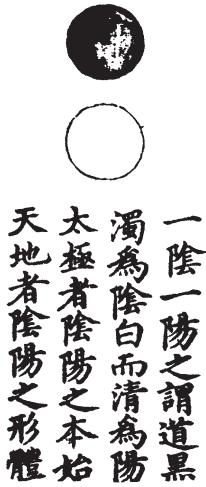 一陰一陽之謂道黑
濁為陰白而清為陽
太極者陰陽之本始
天地者陰陽之形體